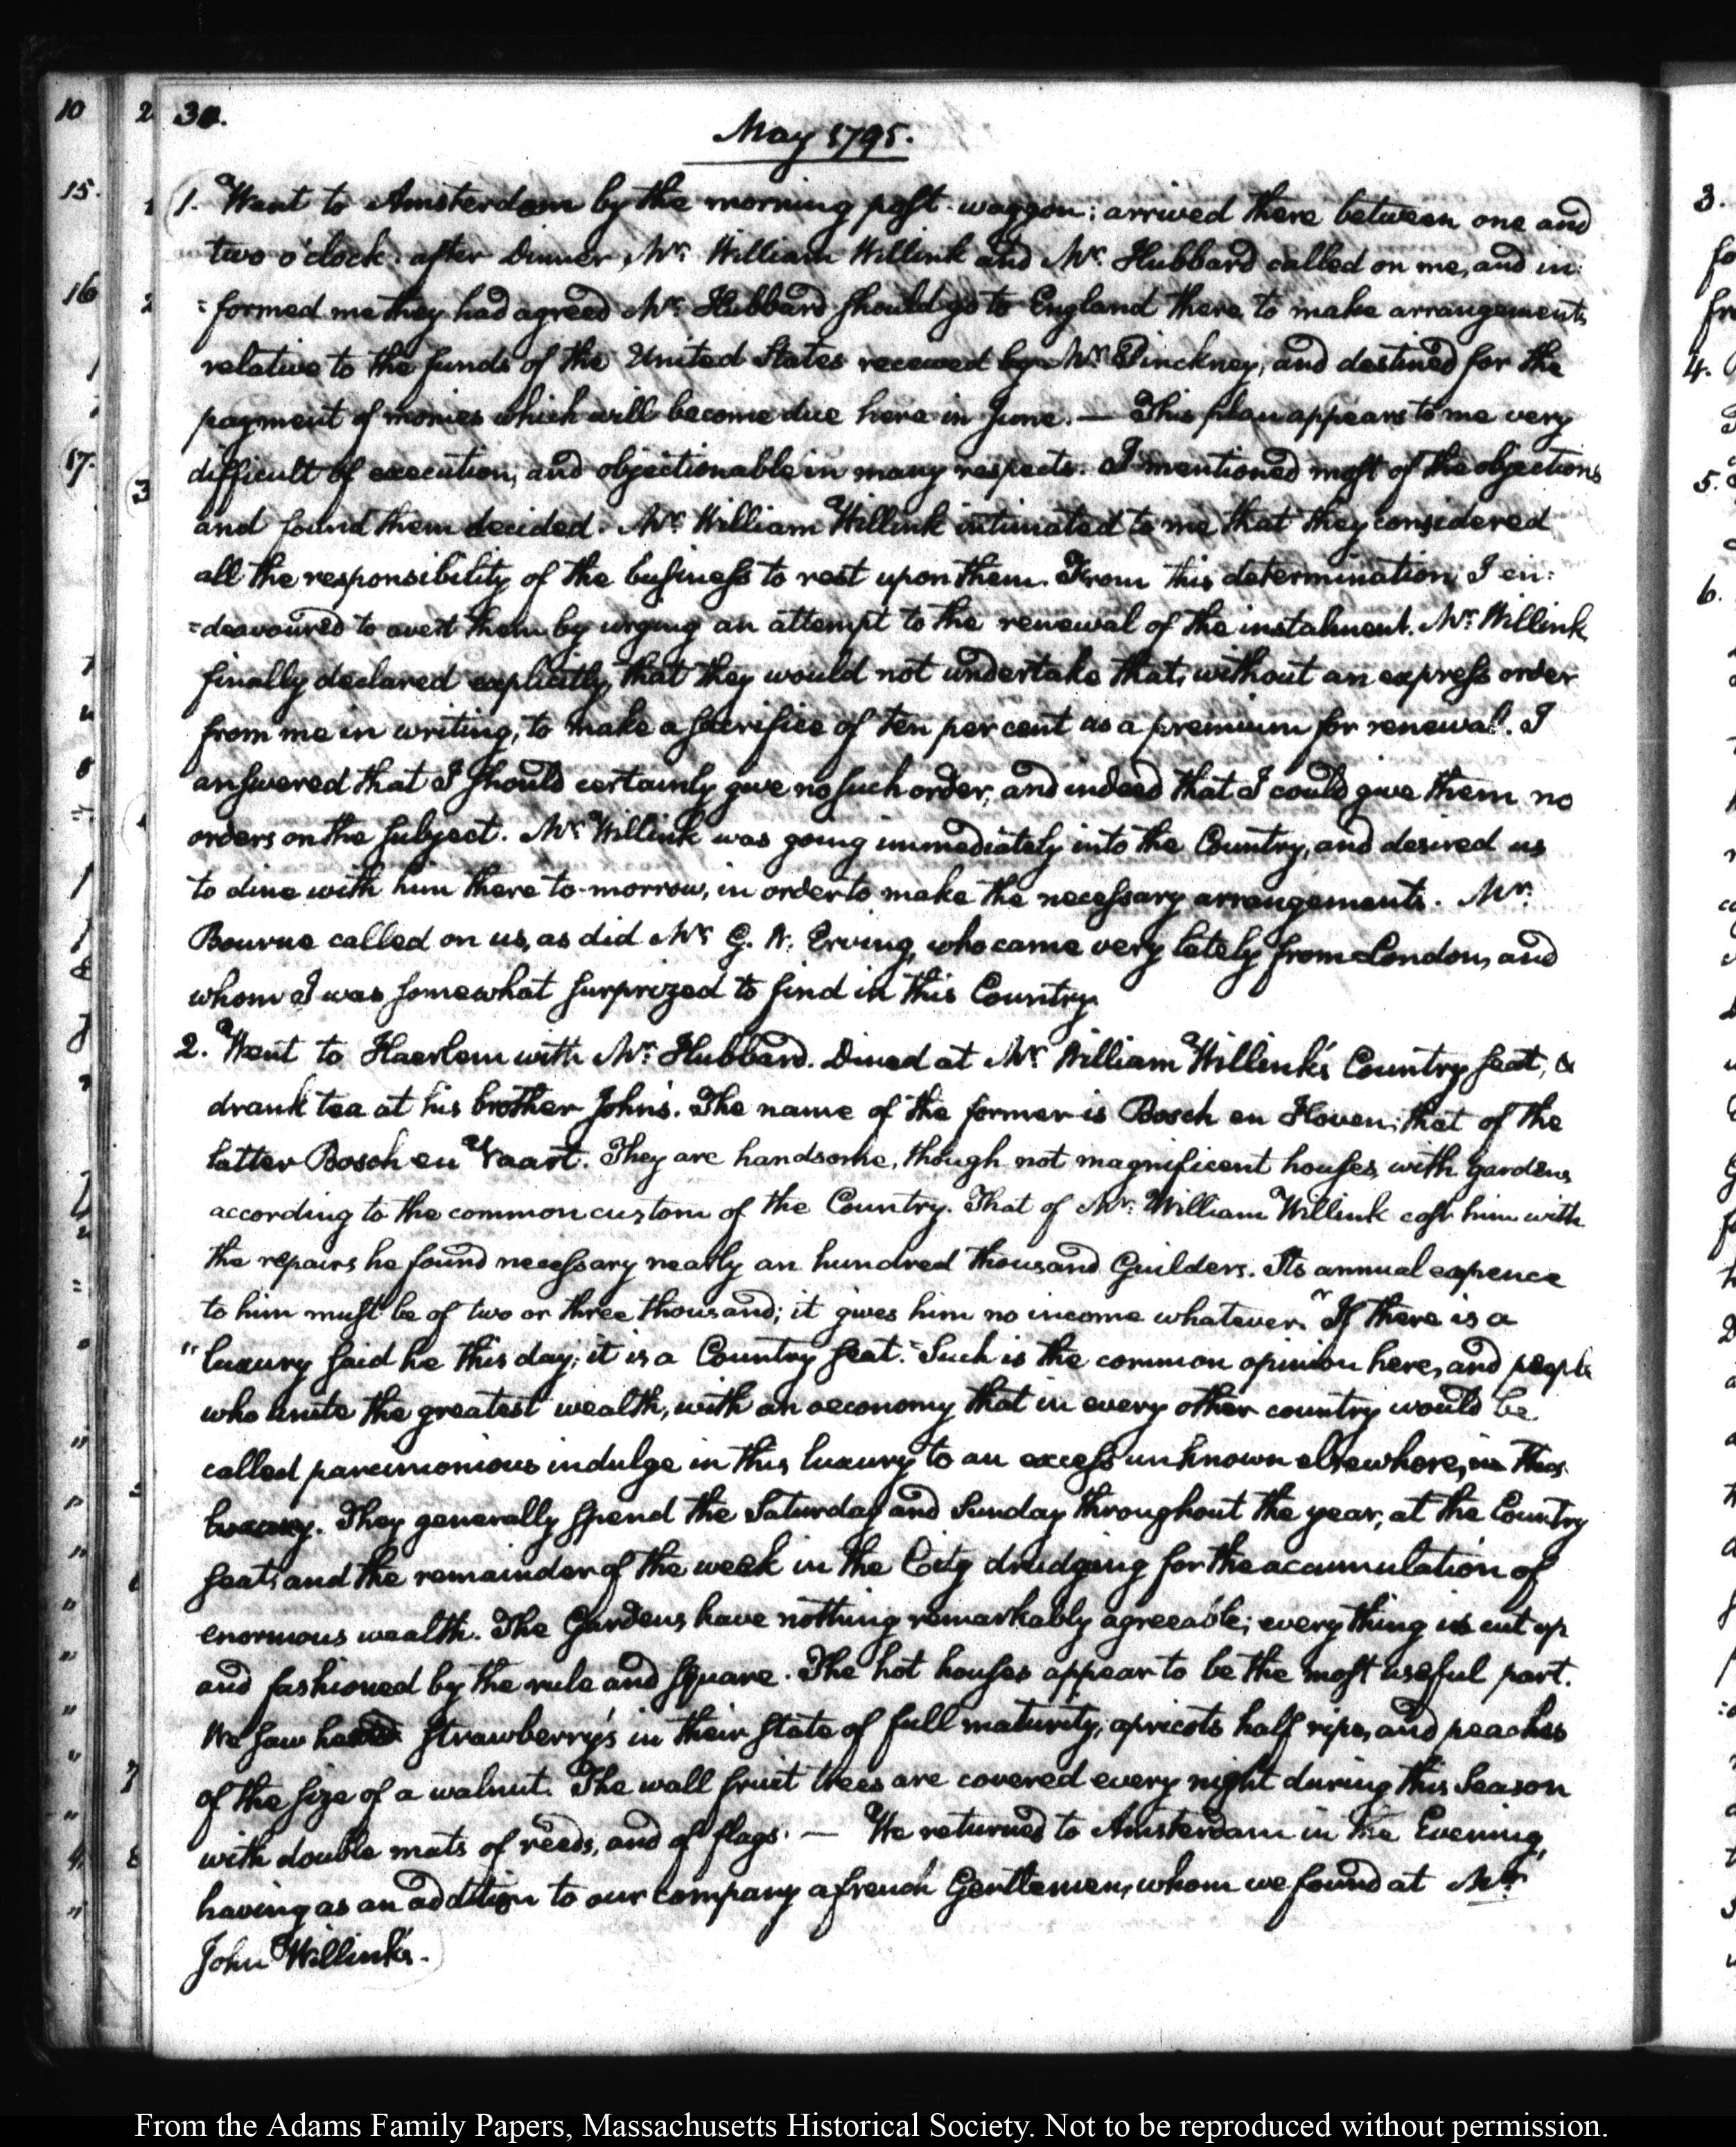 30.
May 1795.
1. Went to Amsterdam by the morning post-waggon: arrived there between one and
two o'clock: after dinner, Mr. William Willink and Mr. Hubbard called on me, and in:
=formed me they had agreed Mr. Hubbard should go to England there to make arrangements
relative to the funds of the United States received by Mr. Pinckney, and destined for the
payment of monies which will become due here in June. — This plan appears to me very
difficult of execution, and objectionable in many respects. I mentioned most of the objections
and found them decided. Mr. William Willink intimated to me that they considered
all the responsibility of the business to rest upon them. From this determination I en:
=deavoured to avert them by urging an attempt to the renewal of the instalment. Mr. Willink
finally declared explicitly, that they would not undertake that, without an express order
from me in writing, to make a sacrifice of ten per cent as a premium for renewal. I
answered that I should certainly give no such order, and indeed that I could give them no
orders on the subject. Mr. Willink was going immediately into the Country, and desired us
to dine with him there to-morrow, in order to make the necessary arrangements. Mr.
Bourne called on us, as did Mr. G. W. Erving, who came very lately from London, and
whom I was somewhat surprized to find in this Country.
2. Went to Haerlem with Mr. Hubbard. Dined at Mr. William Willink's Country seat, &
drank tea at his brother John's. The name of the former is Bosch en Hoven; that of the
latter Bosch en Vaart. They are handsome, though not magnificent houses, with gardens
according to the common custom of the Country. That of Mr. William Willink cost him with
the repairs he found necessary nearly an hundred thousand Guilders. Its annual expence
to him must be of two or three thousand; it gives him no income whatever. "If there is a
"luxury said he this day, it is a Country seat." Such is the common opinion here, and people
who unite the greatest wealth, with an oeconomy that in every other country would be
called parcimonious indulge in this luxury to an excess unknown elsewhere, in this
luxury. They generally spend the Saturday and Sunday throughout the year, at the Country
seat, and the remainder of the week in the City drudging for the accumulation of
enormous wealth. The Gardens have nothing remarkably agreeable; every thing is cut up
and fashioned by the rule and square. The hot houses appear to be the most useful part.
We saw strawberry's in their state of full maturity, apricots half ripe, and peaches
of the size of a walnut. The wall fruit trees are covered every night during this Season
with double mats of reeds, and of flags. — We returned to Amsterdam in the Evening,
having as an addition to our company a french Gentleman, whom we found at Mr.
John Willink's.
From the Adams Family Papers, Massachusetts Historical Society. Not to be reproduced without permission.